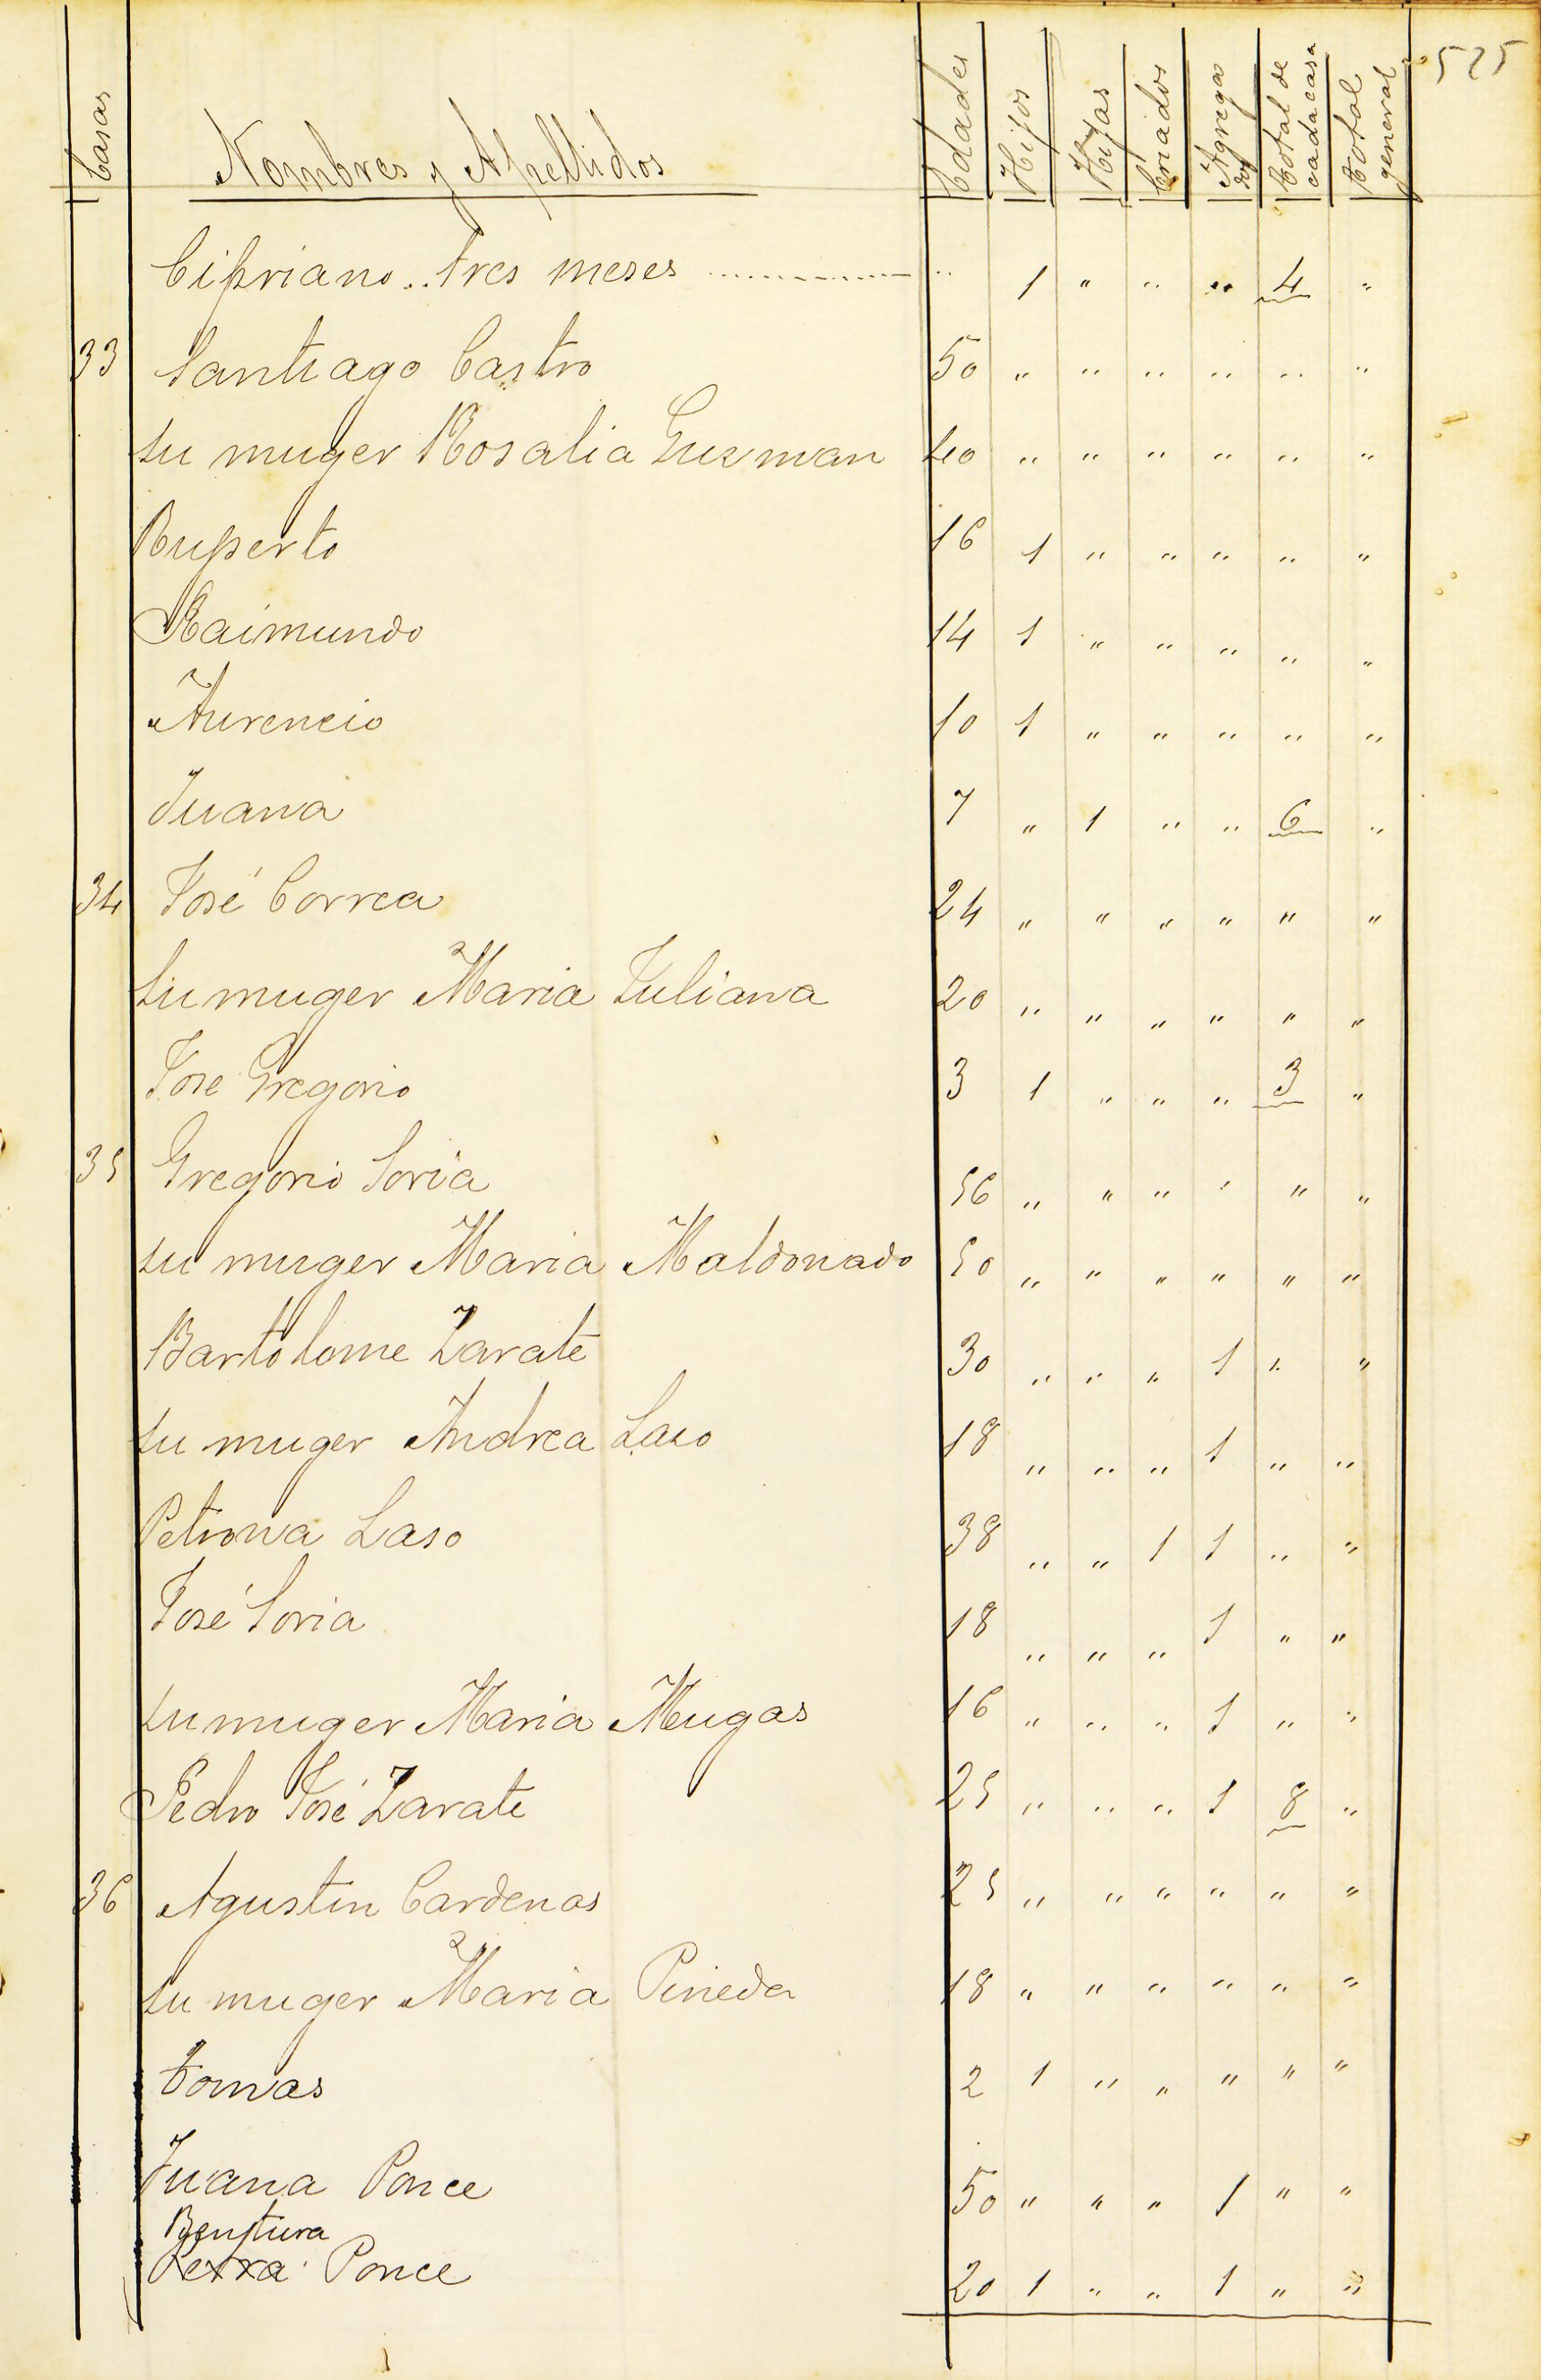 525
Casas Nombres y Apellidos Edades Hijos Hijas Criados Agregados Total de cada casa Total general
Cipriano .. tres meses .............. " 1 " " " 4 "
33 Santiago Castro 50 " " " " " "
su muger Rosalia Guzman 40 " " " " " "
Ruperto 16 1 " " " " "
Raimundo 14 1 " " " " "
Aurencio 10 1 " " " " "
Juana 7 " 1 " " 6 "
34 José Correa 24 " " " " " "
su muger Maria Juliana 20 " " " " " "
Jose Gregorio 3 1 " " " 3 "
35 Gregorio Soria 56 " " " " " "
su muger Maria Maldonado 50 " " " " " "
Bartolome Zarate 30 " " " 1 " "
su muger Andrea Laso 18 " " " 1 " "
Petrona Laso 38 " " 1 1 " "
José Soria 18 " " " 1 " "
su muger Maria Mugas 16 " " " 1 " "
Pedro José Zarate 25 " " " 1 8 "
36 Agustin Cardenas 25 " " " " " "
su muger Maria Pineda 18 " " " " " "
Tomas 2 1 " " " " "
Juana Ponce 50 " " " 1 " "
Bentura
Petra Ponce 20 1 " " 1 " "